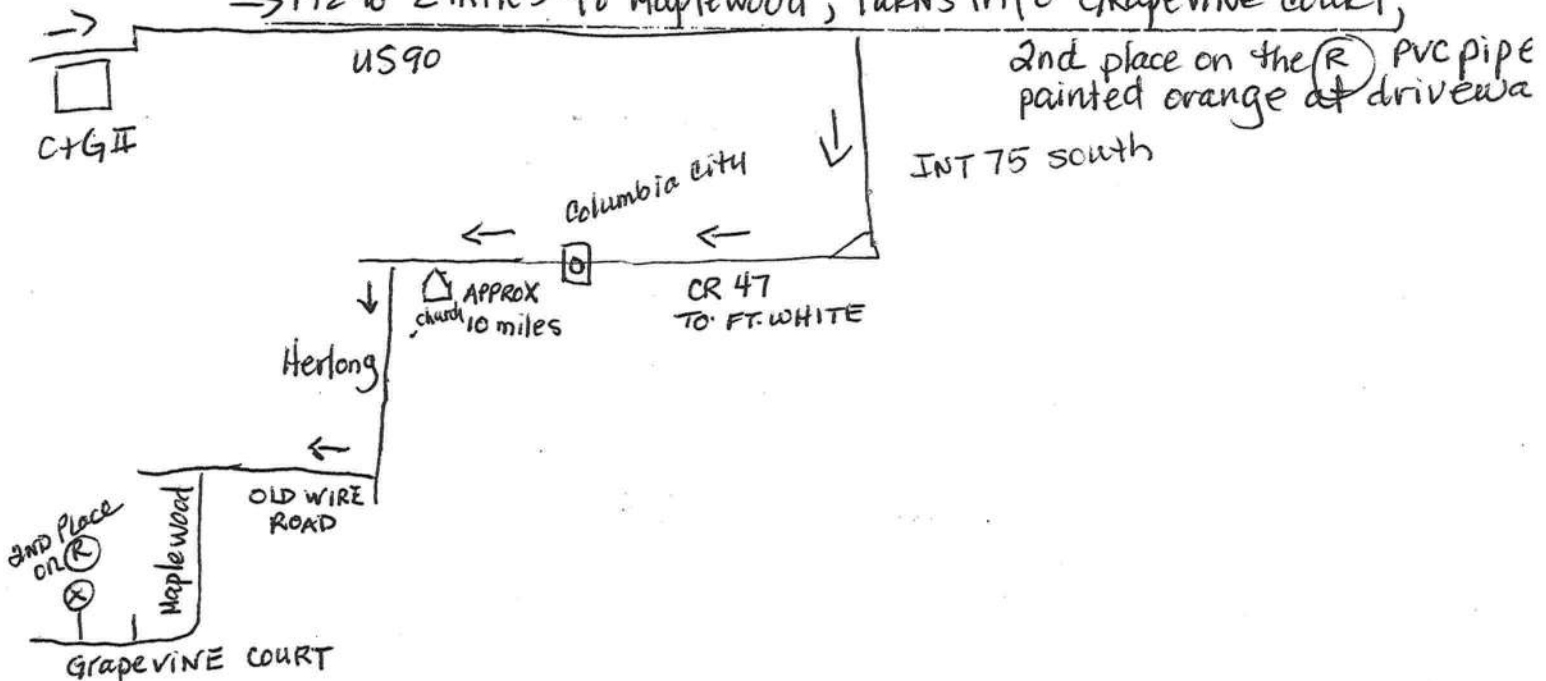 1 1/2 to 2 miles to Maplewood, turns into Grapevine Court,
2nd place on the R PVC pipe
painted orange at drivewa
US90
C+G II
INT 75 south
Columbia City
APPROX
church 10 miles
CR 47
TO FT. WHITE
Herlong
OLD WIRE
ROAD
Maplewood
2ND Place
on R
X
Grapevine Court